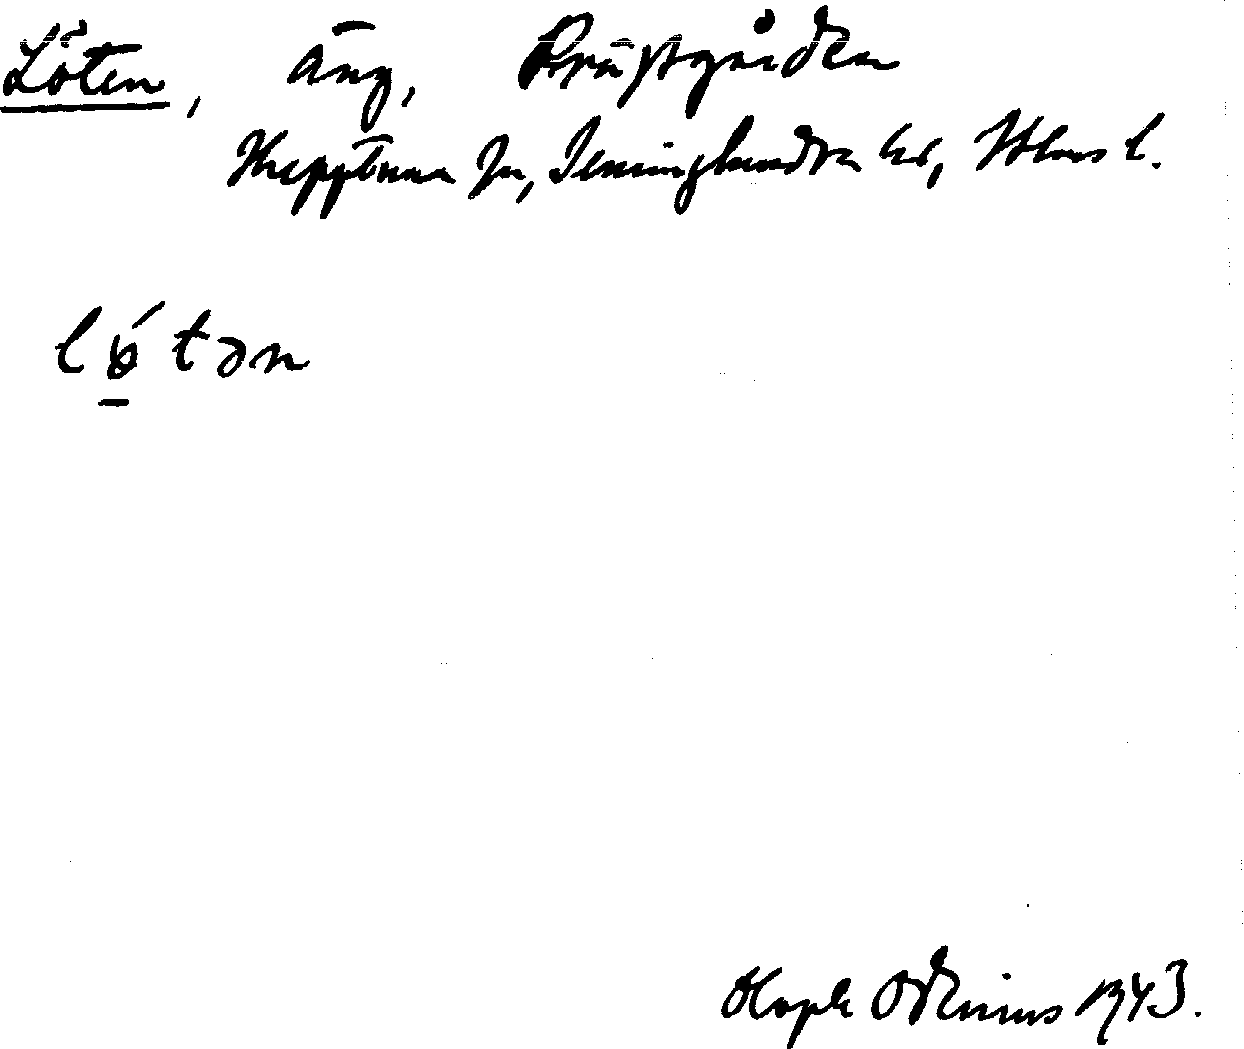 Löten, äng, Prästgården
Skepptuna sn, Seminghundra hd, Sthms l.
lö́tən
Hugh Odenius 1943.